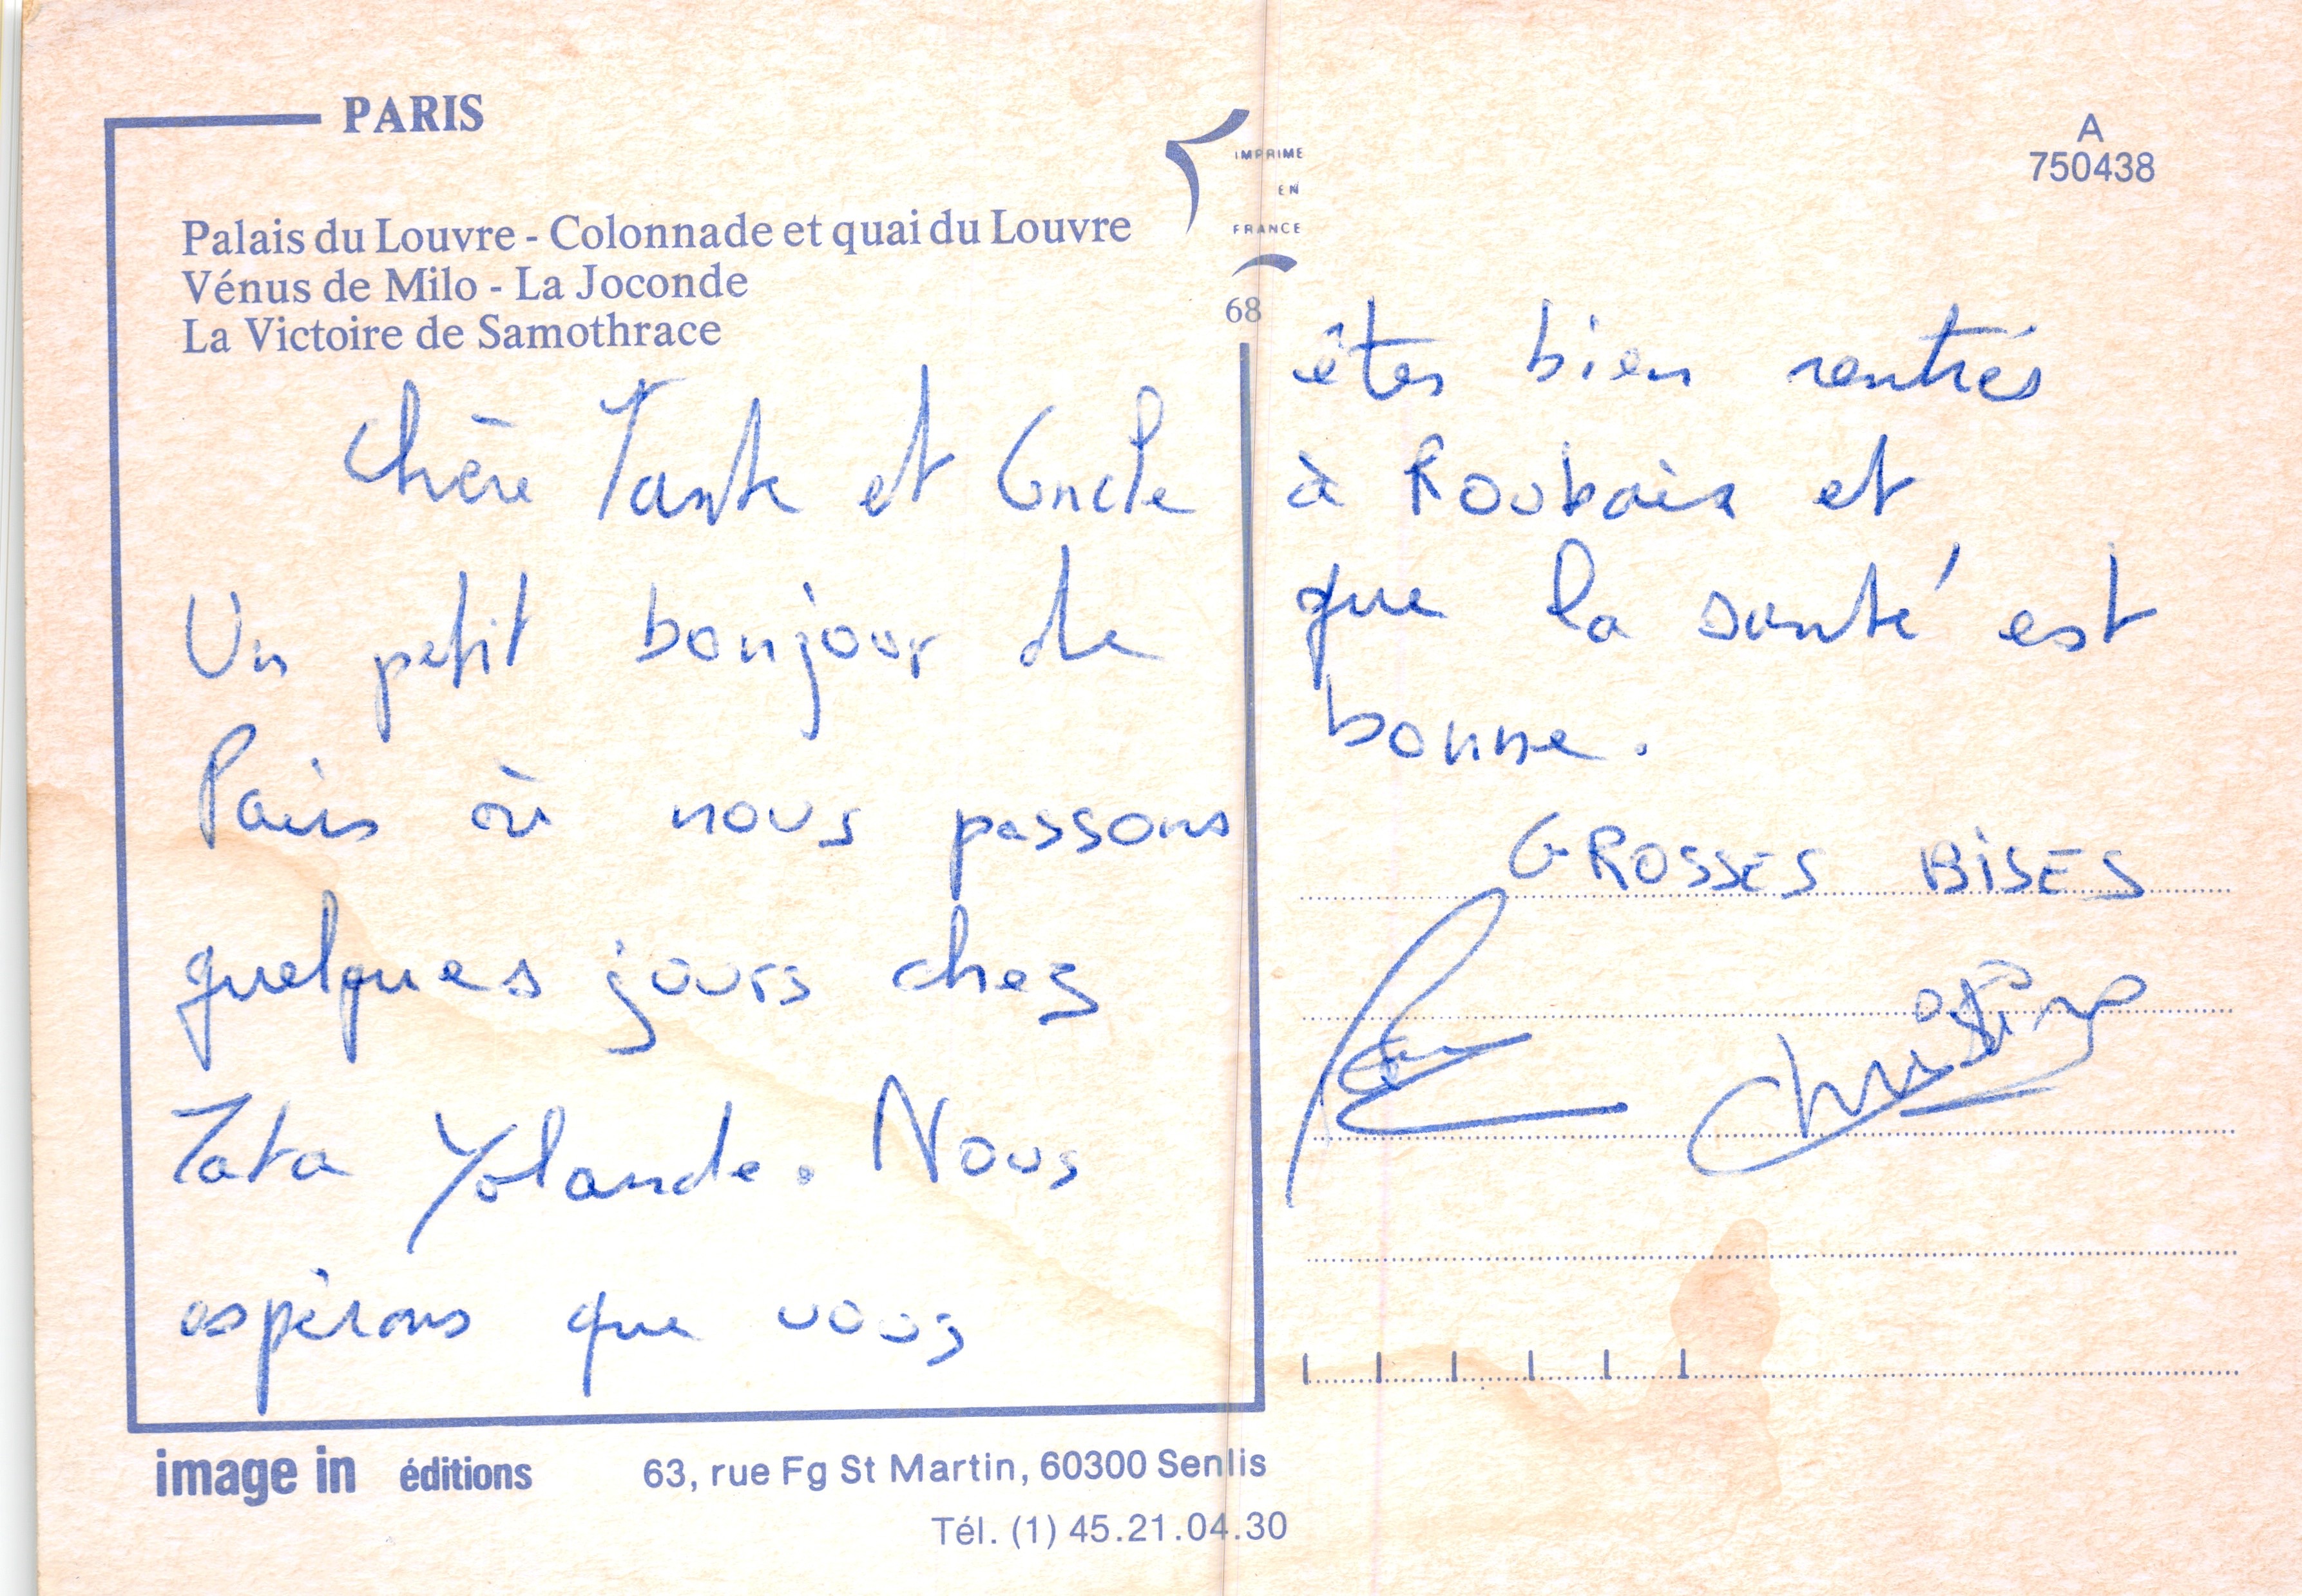 PARIS
Palais du Louvre - Colonnade et quai du Louvre
Vénus de Milo - La Joconde
La Victoire de Samothrace
IMPRIME
EN
FRANCE
68
A
750438
Chère Tante et Oncle
Un petit bonjour de
Paris où nous passons
quelques jours chez
Tata Yolande. Nous
espérons que vous
êtes bien rentrés
à Roubaix et
que la santé est
bonne.
GROSSES BISES
image in éditions 63, rue Fg St Martin, 60300 Senlis
Tél. (1) 45.21.04.30